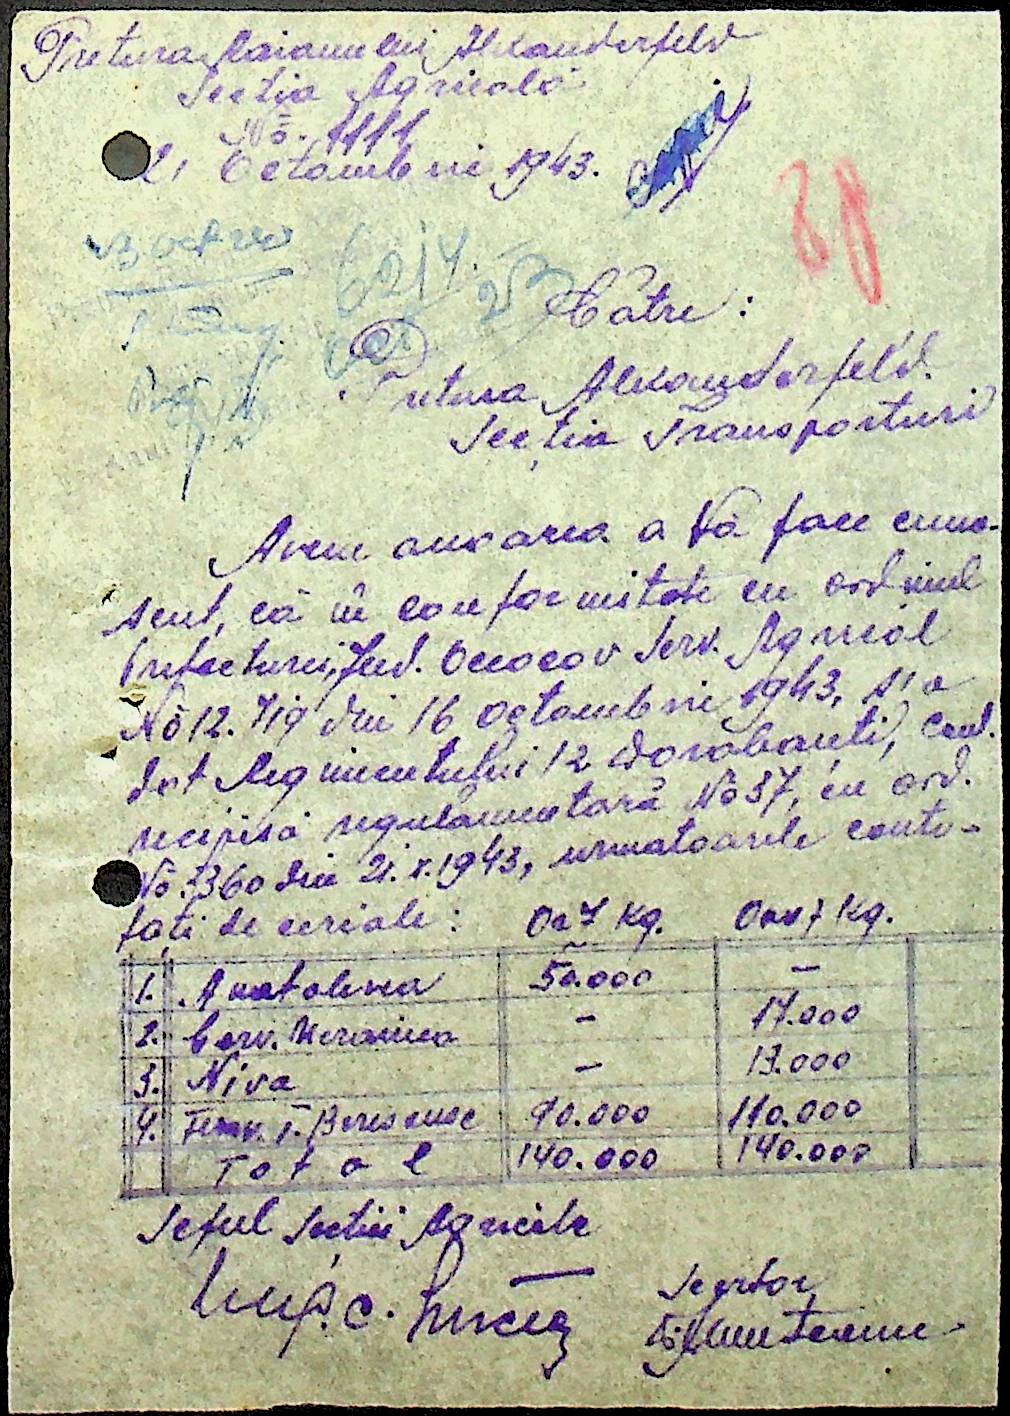 Pretura Raionului Alexanderfeld
Secția Agricolă
No. 1111
21 Octombrie 1943.
6214
Către:
Pretura Alexanderfeld.
Secția Transporturi
Avem onoarea a Vă face cuno-
scut, că în conformitate cu ordinul
Prefecturei, Jud. Oceacov Serv. Agricol
No 12.719 din 16 octombrie 1943, s'a
dat Regimentului 12 Dorobanți, conf.
recipisă regulamentară No 37, cu ord.
No. 3360 din 21.X.1943, urmatoarele canti-
tați de ceriale: Orz Kg. Ovăz Kg.
1. Anatolevca 50.000 –
2. – 17.000
3. Niva – 13.000
4. Ferm. T. 90.000 110.000
Total 140.000 140.000
Șeful Secției Agricole
Munteanu